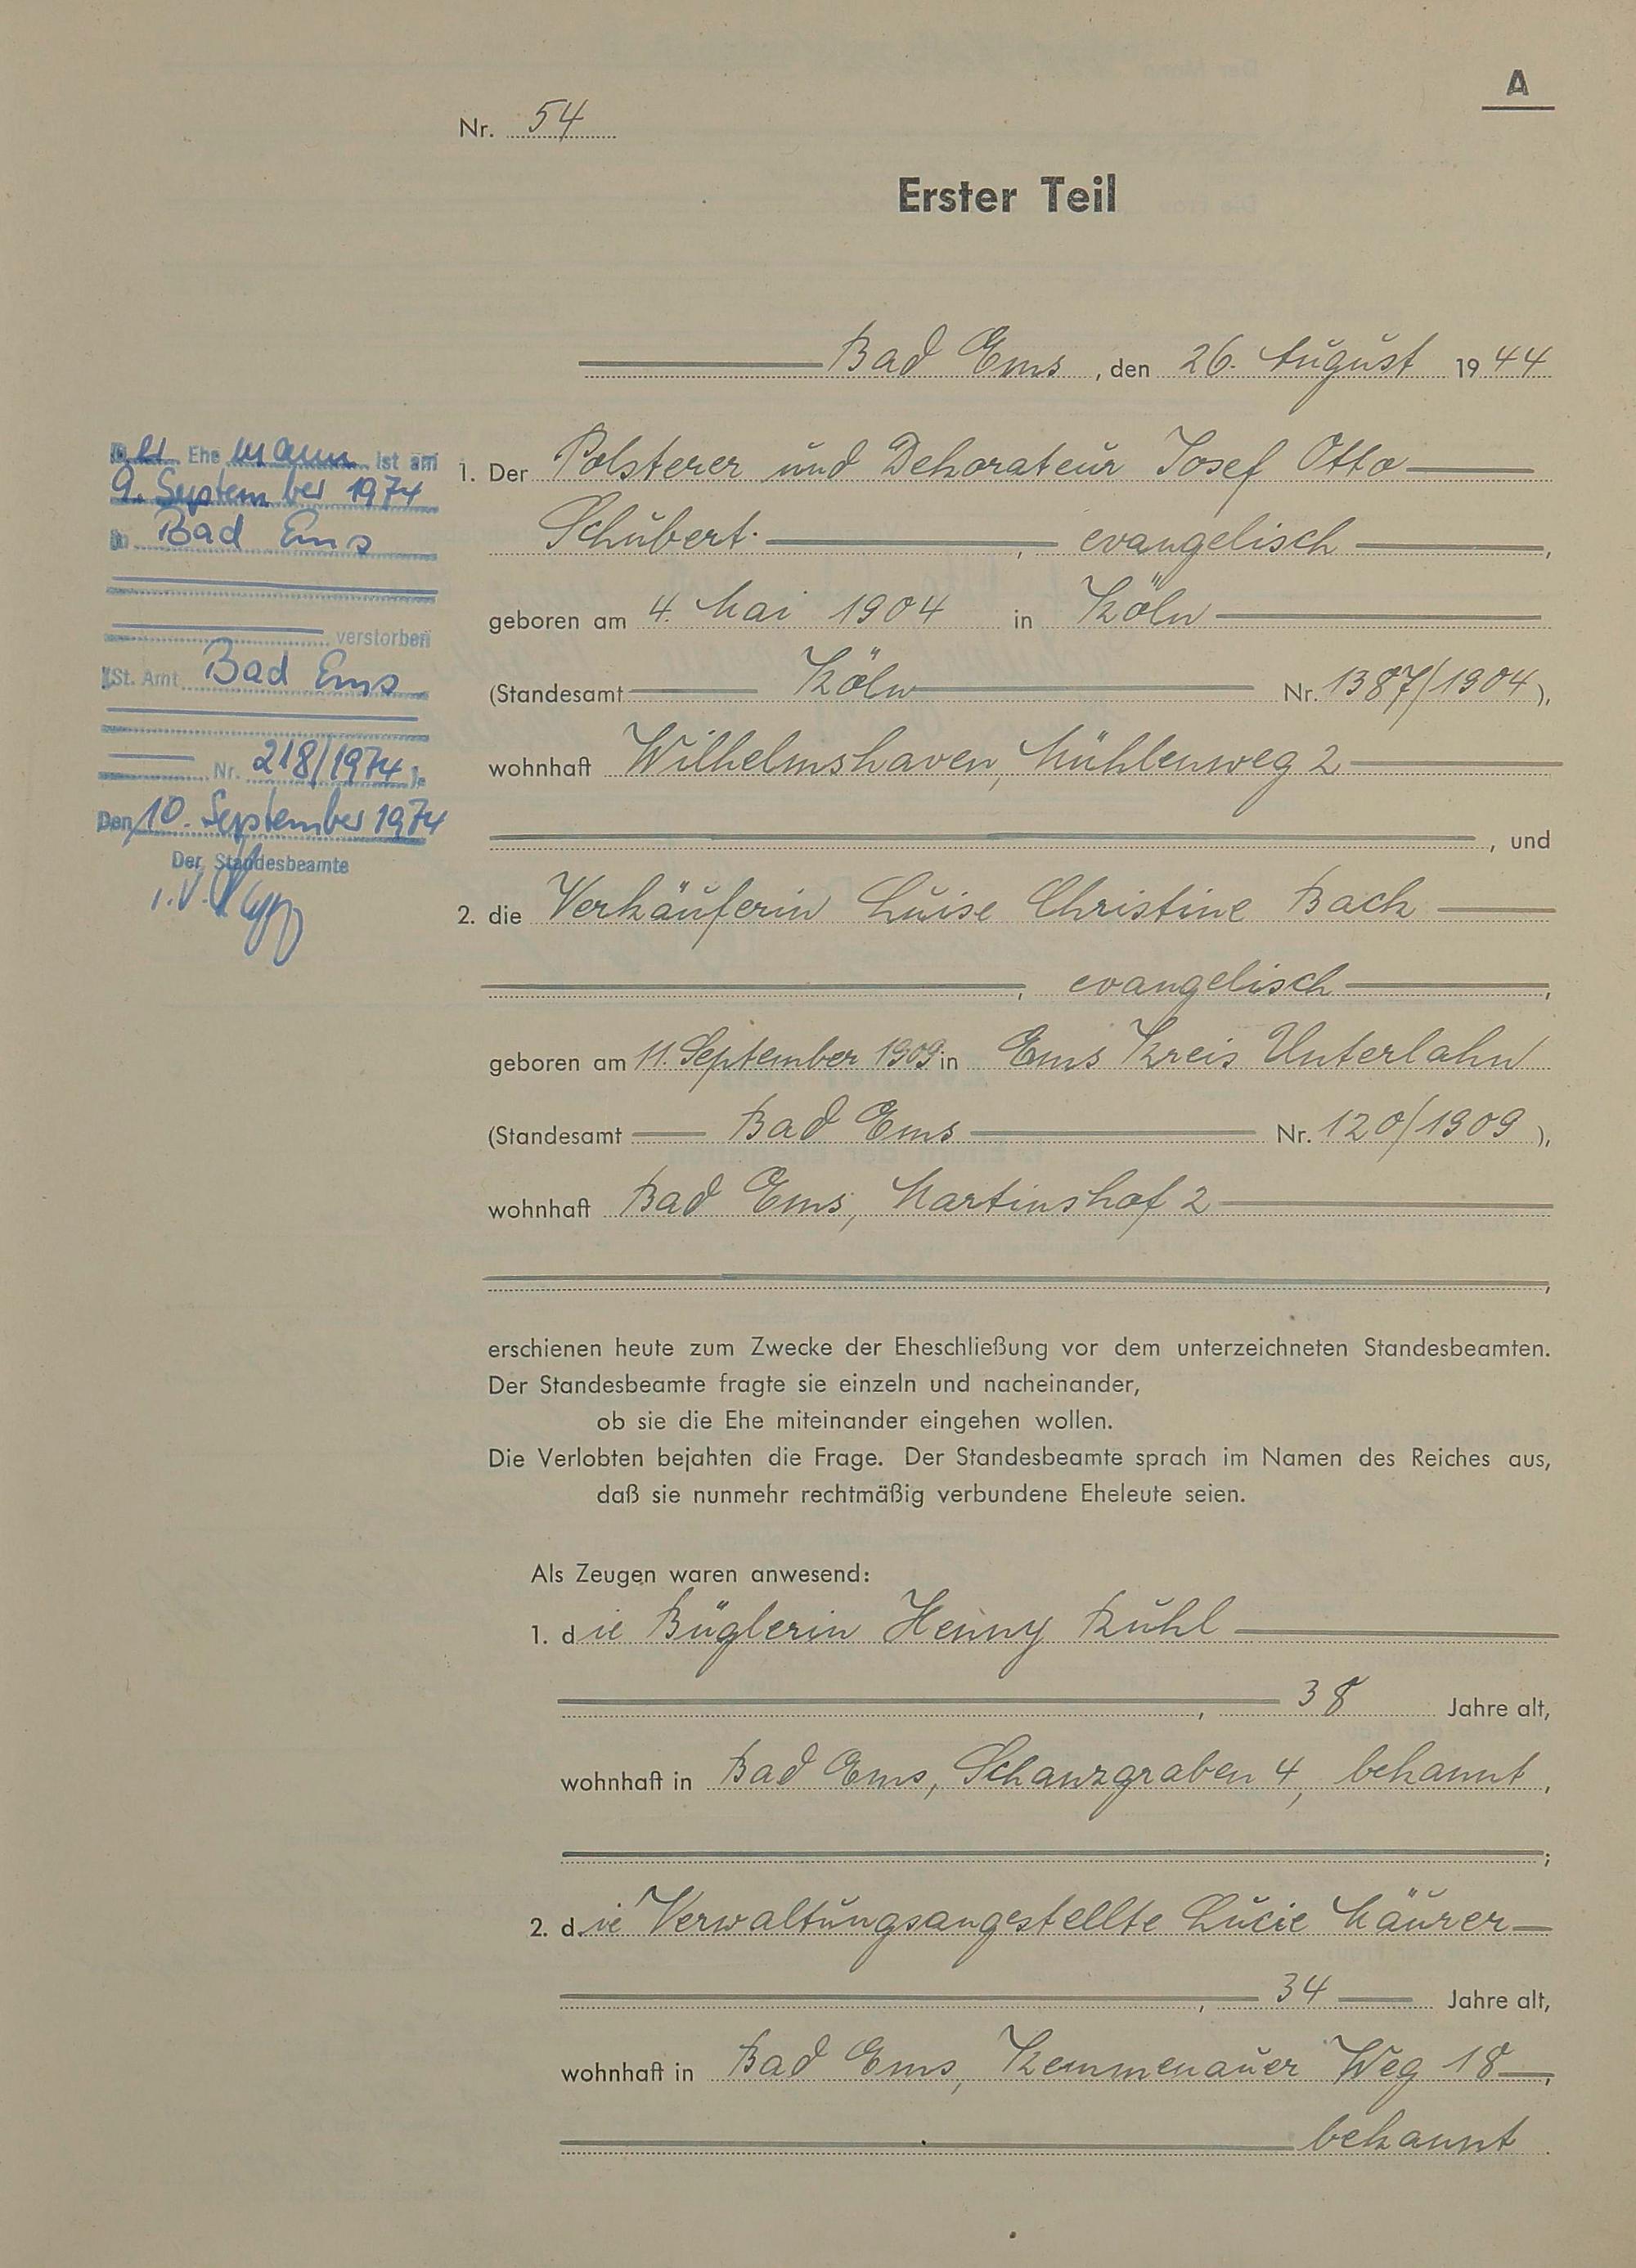 A
Nr. 54
Erster Teil
Bad Ems, den 26. August 1944
Der Ehemann ist am
9. September 1974
in Bad Ems
verstorben
(St. Amt Bad Ems
Nr. 218/1974).
Den 10. September 1974
Der Standesbeamte
i.V.
1. Der Polsterer und Dekorateur Josef Otto
Schubert, evangelisch,
geboren am 4. Mai 1904 in Köln
(Standesamt Köln Nr. 1387/1904),
wohnhaft Wilhelmshaven, Mühlenweg 2
, und
2. die Verkäuferin Luise Christine Bach
, evangelisch,
geboren am 11. September 1909 in Ems Kreis Unterlahn
(Standesamt Bad Ems Nr. 120/1909),
wohnhaft Bad Ems, Martinshof 2
,
erschienen heute zum Zwecke der Eheschließung vor dem unterzeichneten Standesbeamten.
Der Standesbeamte fragte sie einzeln und nacheinander,
ob sie die Ehe miteinander eingehen wollen.
Die Verlobten bejahten die Frage. Der Standesbeamte sprach im Namen des Reiches aus,
daß sie nunmehr rechtmäßig verbundene Eheleute seien.
Als Zeugen waren anwesend:
1. die Büglerin Henny Kuhl
, 38 Jahre alt,
wohnhaft in Bad Ems, Schanzgraben 4, bekannt,
;
2. die Verwaltungsangestellte Lucie Mäurer
, 34 Jahre alt,
wohnhaft in Bad Ems, Kemmenauer Weg 18,
bekannt.